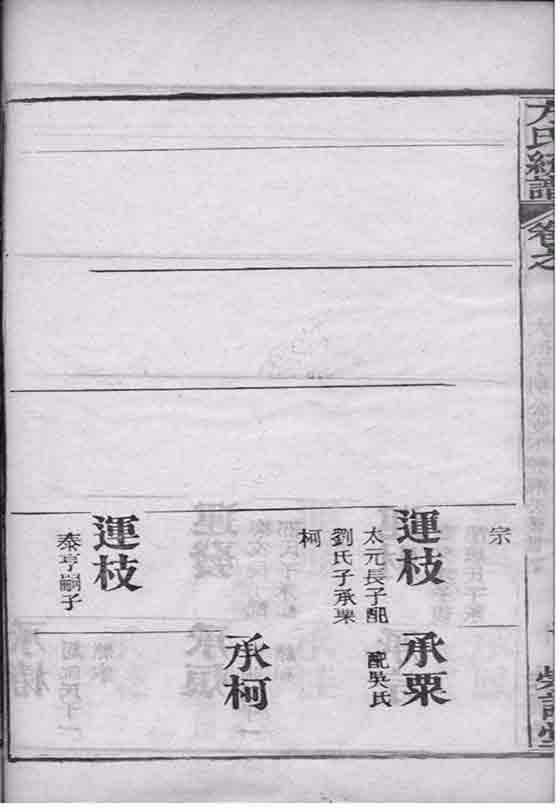 方氏 譜
卷之
宗
運枝
太元長子配
劉氏子承粟
柯
運枝
泰亨嗣子
承粟
配吳氏
承柯